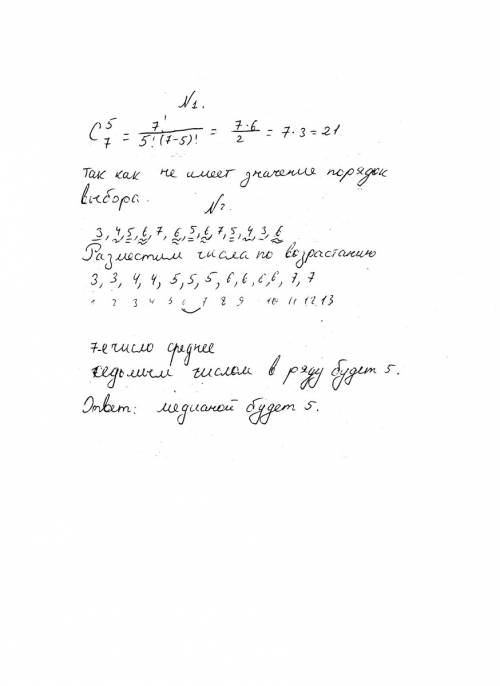 N1.
C₇⁵ = 7! / 5!(7-5)! = 7·6 / 2 = 7·3 = 21
так как не имет значение порядок
выбора.
N2
3, 4, 5, 6, 7, 6, 5, 6, 7, 5, 4, 3, 6
Разместим числа по возрастанию
3, 3, 4, 4, 5, 5, 5, 6, 6, 6, 6, 7, 7
1 2 3 4 5 6 7 8 9 10 11 12 13
7-е число среднее
седьмым числом в ряду будет 5.
Ответ: медианой будет 5.